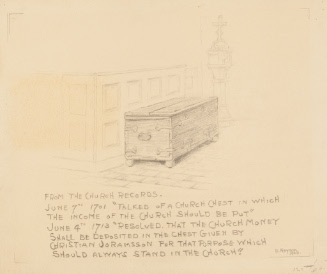 FROM THE CHURCH RECORDS.
JUNE 7TH 1701 "TALKED OF A CHURCH CHEST IN WHICH
THE INCOME OF THE CHURCH SHOULD BE PUT"
JUNE 4TH 1713 "RESOLVED, THAT THE CHURCH MONEY
SHALL BE DEPOSITED IN THE CHEST GIVEN BY
CHRISTIAN JORAMSSON FOR THAT PURPOSE WHICH
SHOULD ALWAYS STAND IN THE CHURCH"